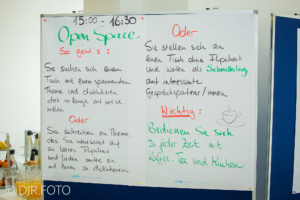 15:00 - 16:30
Open Space
So geht's:
Sie suchen sich einen
Tisch mit einem spannenden
Thema und diskutieren
dort so lange mit wie sie
wollen
Oder
Sie schreiben ein Thema,
das Sie interessiert auf
ein leeres Flipchart
und laden andere ein
mit Ihnen zu diskutieren.
Oder
Sie stellen sich an
einen Tisch ohne Flipchart
und warten als Schmetterling
auf interessante
Gesprächspartner/innen.
Wichtig:
Bedienen Sie sich
zu jeder Zeit mit
Kaffee, Tee und Kuchen
© DIR FOTO